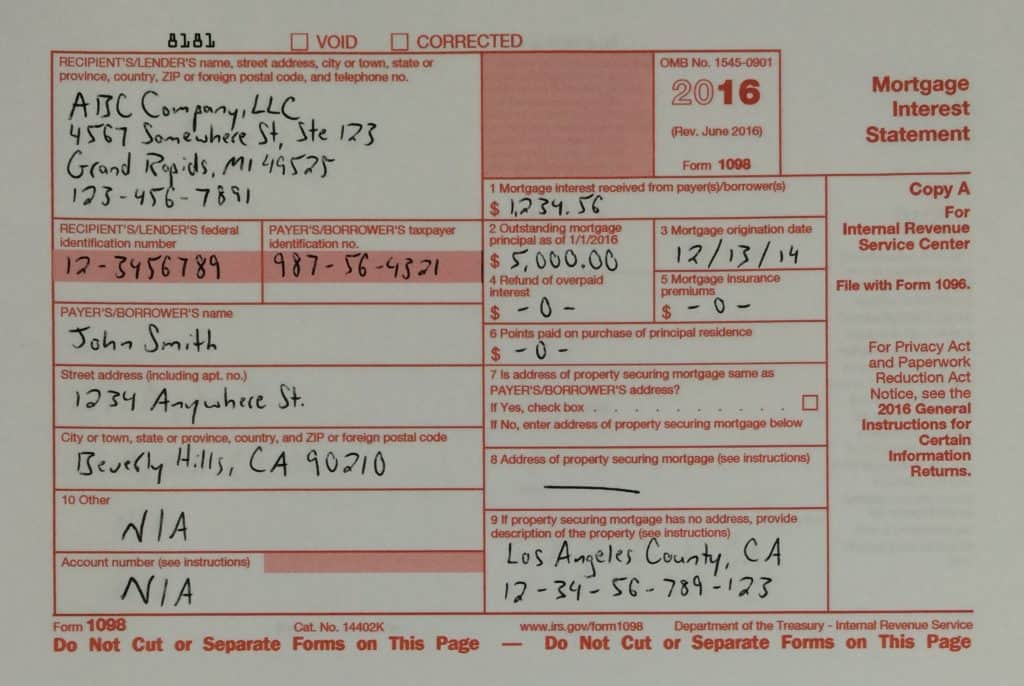 8181 VOID CORRECTED
RECIPIENT'S/LENDER'S name, street address, city or town, state or
province, country, ZIP or foreign postal code, and telephone no.
ABC Company, LLC
4567 Somewhere St, Ste 123
Grand Rapids, MI 49525
123-456-7891
OMB No. 1545-0901
2016
(Rev. June 2016)
Form 1098
Mortgage
Interest
Statement
1 Mortgage interest received from payer(s)/borrower(s)
$ 1,234.56
RECIPIENT'S/LENDER'S federal
identification number
12-3456789
PAYER'S/BORROWER'S taxpayer
identification no.
987-56-4321
2 Outstanding mortgage
principal as of 1/1/2016
$ 5,000.00
3 Mortgage origination date
12/13/14
4 Refund of overpaid
interest
$ -0-
5 Mortgage insurance
premiums
$ -0-
PAYER'S/BORROWER'S name
John Smith
6 Points paid on purchase of principal residence
$ -0-
Street address (including apt. no.)
1234 Anywhere St.
7 Is address of property securing mortgage same as
PAYER'S/BORROWER'S address?
If Yes, check box . . . . . . . . . . . .
If No, enter address of property securing mortgage below
City or town, state or province, country, and ZIP or foreign postal code
Beverly Hills, CA 90210
8 Address of property securing mortgage (see instructions)
10 Other
N/A
9 If property securing mortgage has no address, provide
description of the property (see instructions)
Los Angeles County, CA
12-34-56-789-123
Account number (see instructions)
N/A
Copy A
For
Internal Revenue
Service Center
File with Form 1096.
For Privacy Act
and Paperwork
Reduction Act
Notice, see the
2016 General
Instructions for
Certain
Information
Returns.
Form 1098 Cat. No. 14402K www.irs.gov/form1098 Department of the Treasury - Internal Revenue Service
Do Not Cut or Separate Forms on This Page — Do Not Cut or Separate Forms on This Page